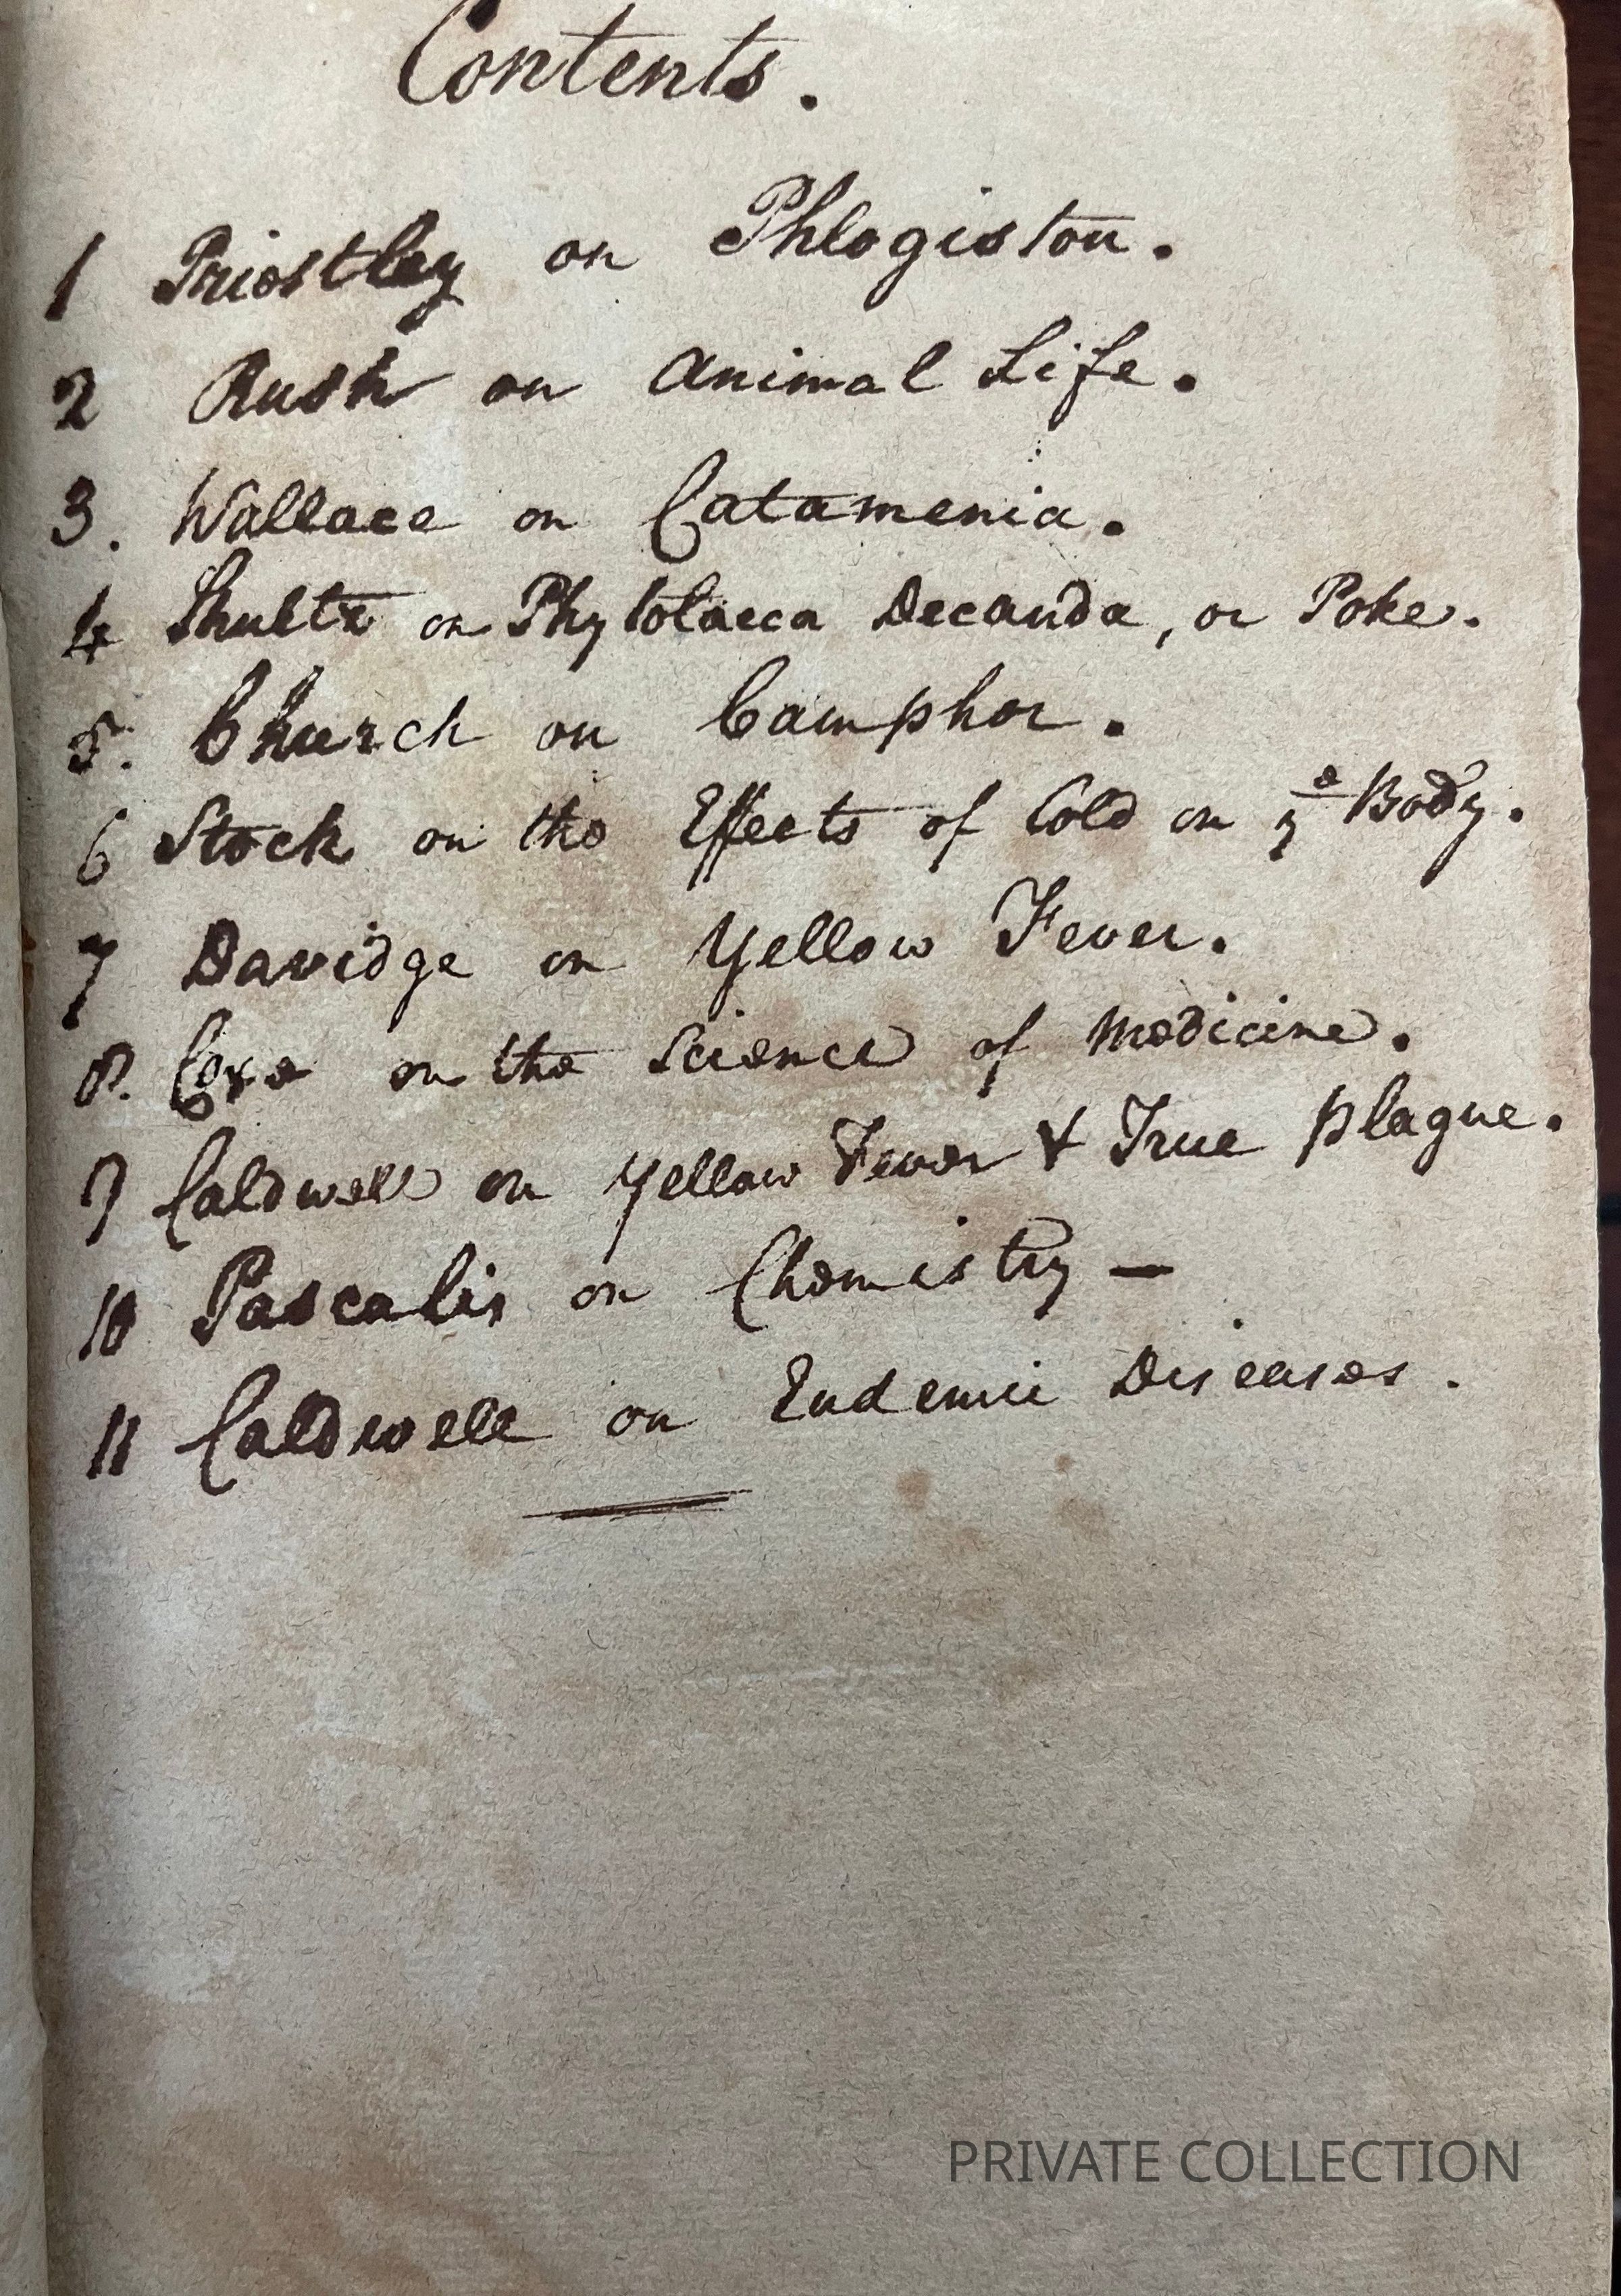 Contents.
1 Priestley on Phlogiston.
2 Rush on Animal Life.
3. Wallace on Catamenia.
4 Shultz on Phytolacca Decanda, or Poke.
5. Church on Camphor.
6 Stock on the Effects of Cold on yᵉ Body.
7 Davidge on Yellow Fever.
8. Coxe on the Science of Medicine.
9 Caldwell on Yellow Fever & True Plague.
10 Pascalis on Chemistry —
11 Caldwell on Endemic Diseases.
PRIVATE COLLECTION